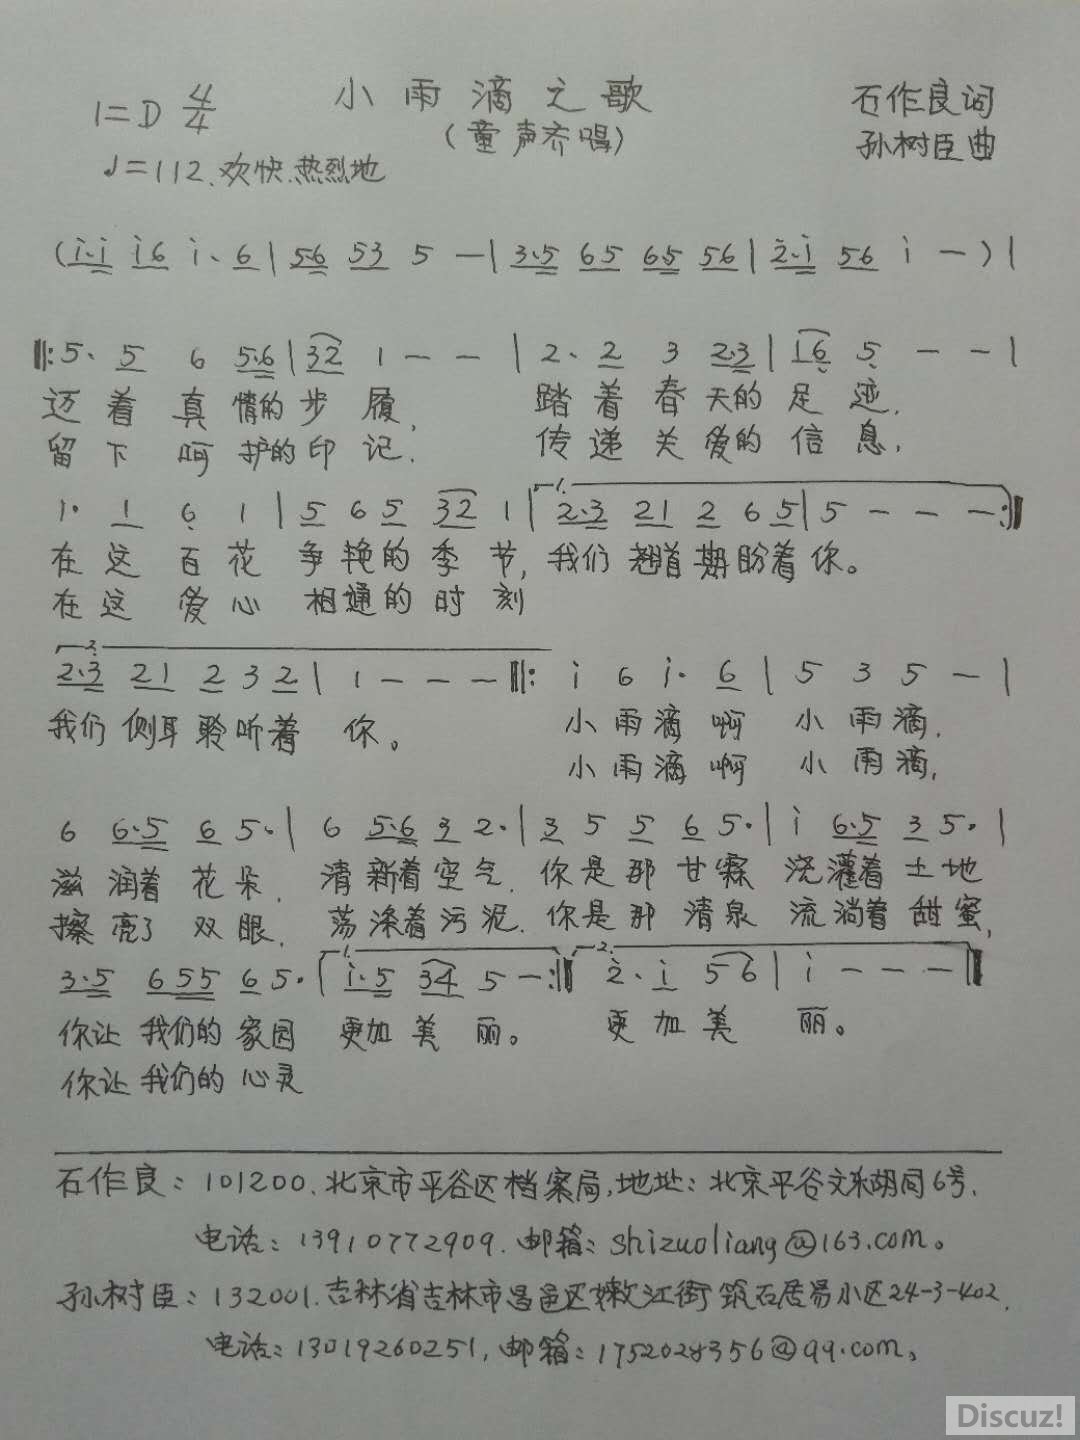 小雨滴之歌
1=D 4/4
(童声齐唱)
石作良词
孙树臣曲
♩=112.欢快.热烈地
(i·i i6 i· 6 | 56 53 5 — | 3·5 65 65 56 | 2·i 56 i —) |
‖: 5· 5 6 5·6 | 32 1 — — | 2· 2 3 2·3 | 16 5 — — |
迈着真情的步履, 踏着春天的足迹,
留下呵护的印记. 传递关爱的信息,
1· 1 6 1 | 5 6 5 32 1 | 1. 2·3 21 2 6 5 | 5 — — — :‖
在这百花争艳的季节, 我们翘首期盼着你。
在这爱心相通的时刻
2. 2·3 21 2 3 2 | 1 — — — ‖: i 6 i· 6 | 5 3 5 — |
我们侧耳聆听着你。 小雨滴啊 小雨滴,
小雨滴啊 小雨滴,
6 6·5 6 5· | 6 5·6 3 2· | 3 5 5 6 5· | i 6·5 3 5· |
滋润着花朵, 清新着空气. 你是那甘霖 浇灌着土地
擦亮了双眼, 荡涤着污泥. 你是那清泉 流淌着甜蜜,
3·5 655 6 5· | 1. i·5 34 5 — :‖ 2. 2· i 56 | i — — — ‖
你让我们的家园 更加美丽。 更加美丽。
你让我们的心灵
石作良: 101200.北京市平谷区档案局,地址:北京平谷文东胡同6号.
电话: 13910772909. 邮箱: shizuoliang@163.com。
孙树臣: 132001.吉林省吉林市昌邑区嫩江街筑石居易小区24-3-402.
电话: 13019260251, 邮箱: 1752028356@qq.com。
Discuz!